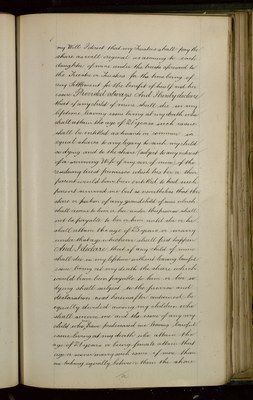 my Will I direct that my Trustees shall pay the
share as well original as accruing to such
daughter of mine under the trusts aforesaid to
the Trustees or Trustee for the time being of
any Settlement for the benefit of herself and her
issue Provided always And I hereby declare
that if any child of mine shall die in my
lifetime leaving issue living at my death who
shall attain the age of 21 years such issue
shall be entitled as tenants in common in
equal shares to any legacy to such my child
so dying and to the share (subject to any interest
of a surviving Wife of any son of mine) of the
residuary trust premises which his her or their
parent would have been entitled to had such
parent survived me but so nevertheless that the
share or portion of any grandchild of mine which
shall accrue to him or her under this proviso shall
not be payable to him or her until he or she
shall attain the age of 25 years or
under that age whichever shall first happen
And I declare that if any child of mine
shall die in my lifetime without leaving lawful
issue living at my death the share which
would have been payable to him or her so
dying shall subject to the proviso and
declaration next hereinafter contained be
equally divided among my children who
shall survive me and the issue of any my
child who have predeceased me leaving lawful
issue living at my death who attain the
age of 21 years or being female attain that
age or marry such issue if more than
one taking equally between them the share